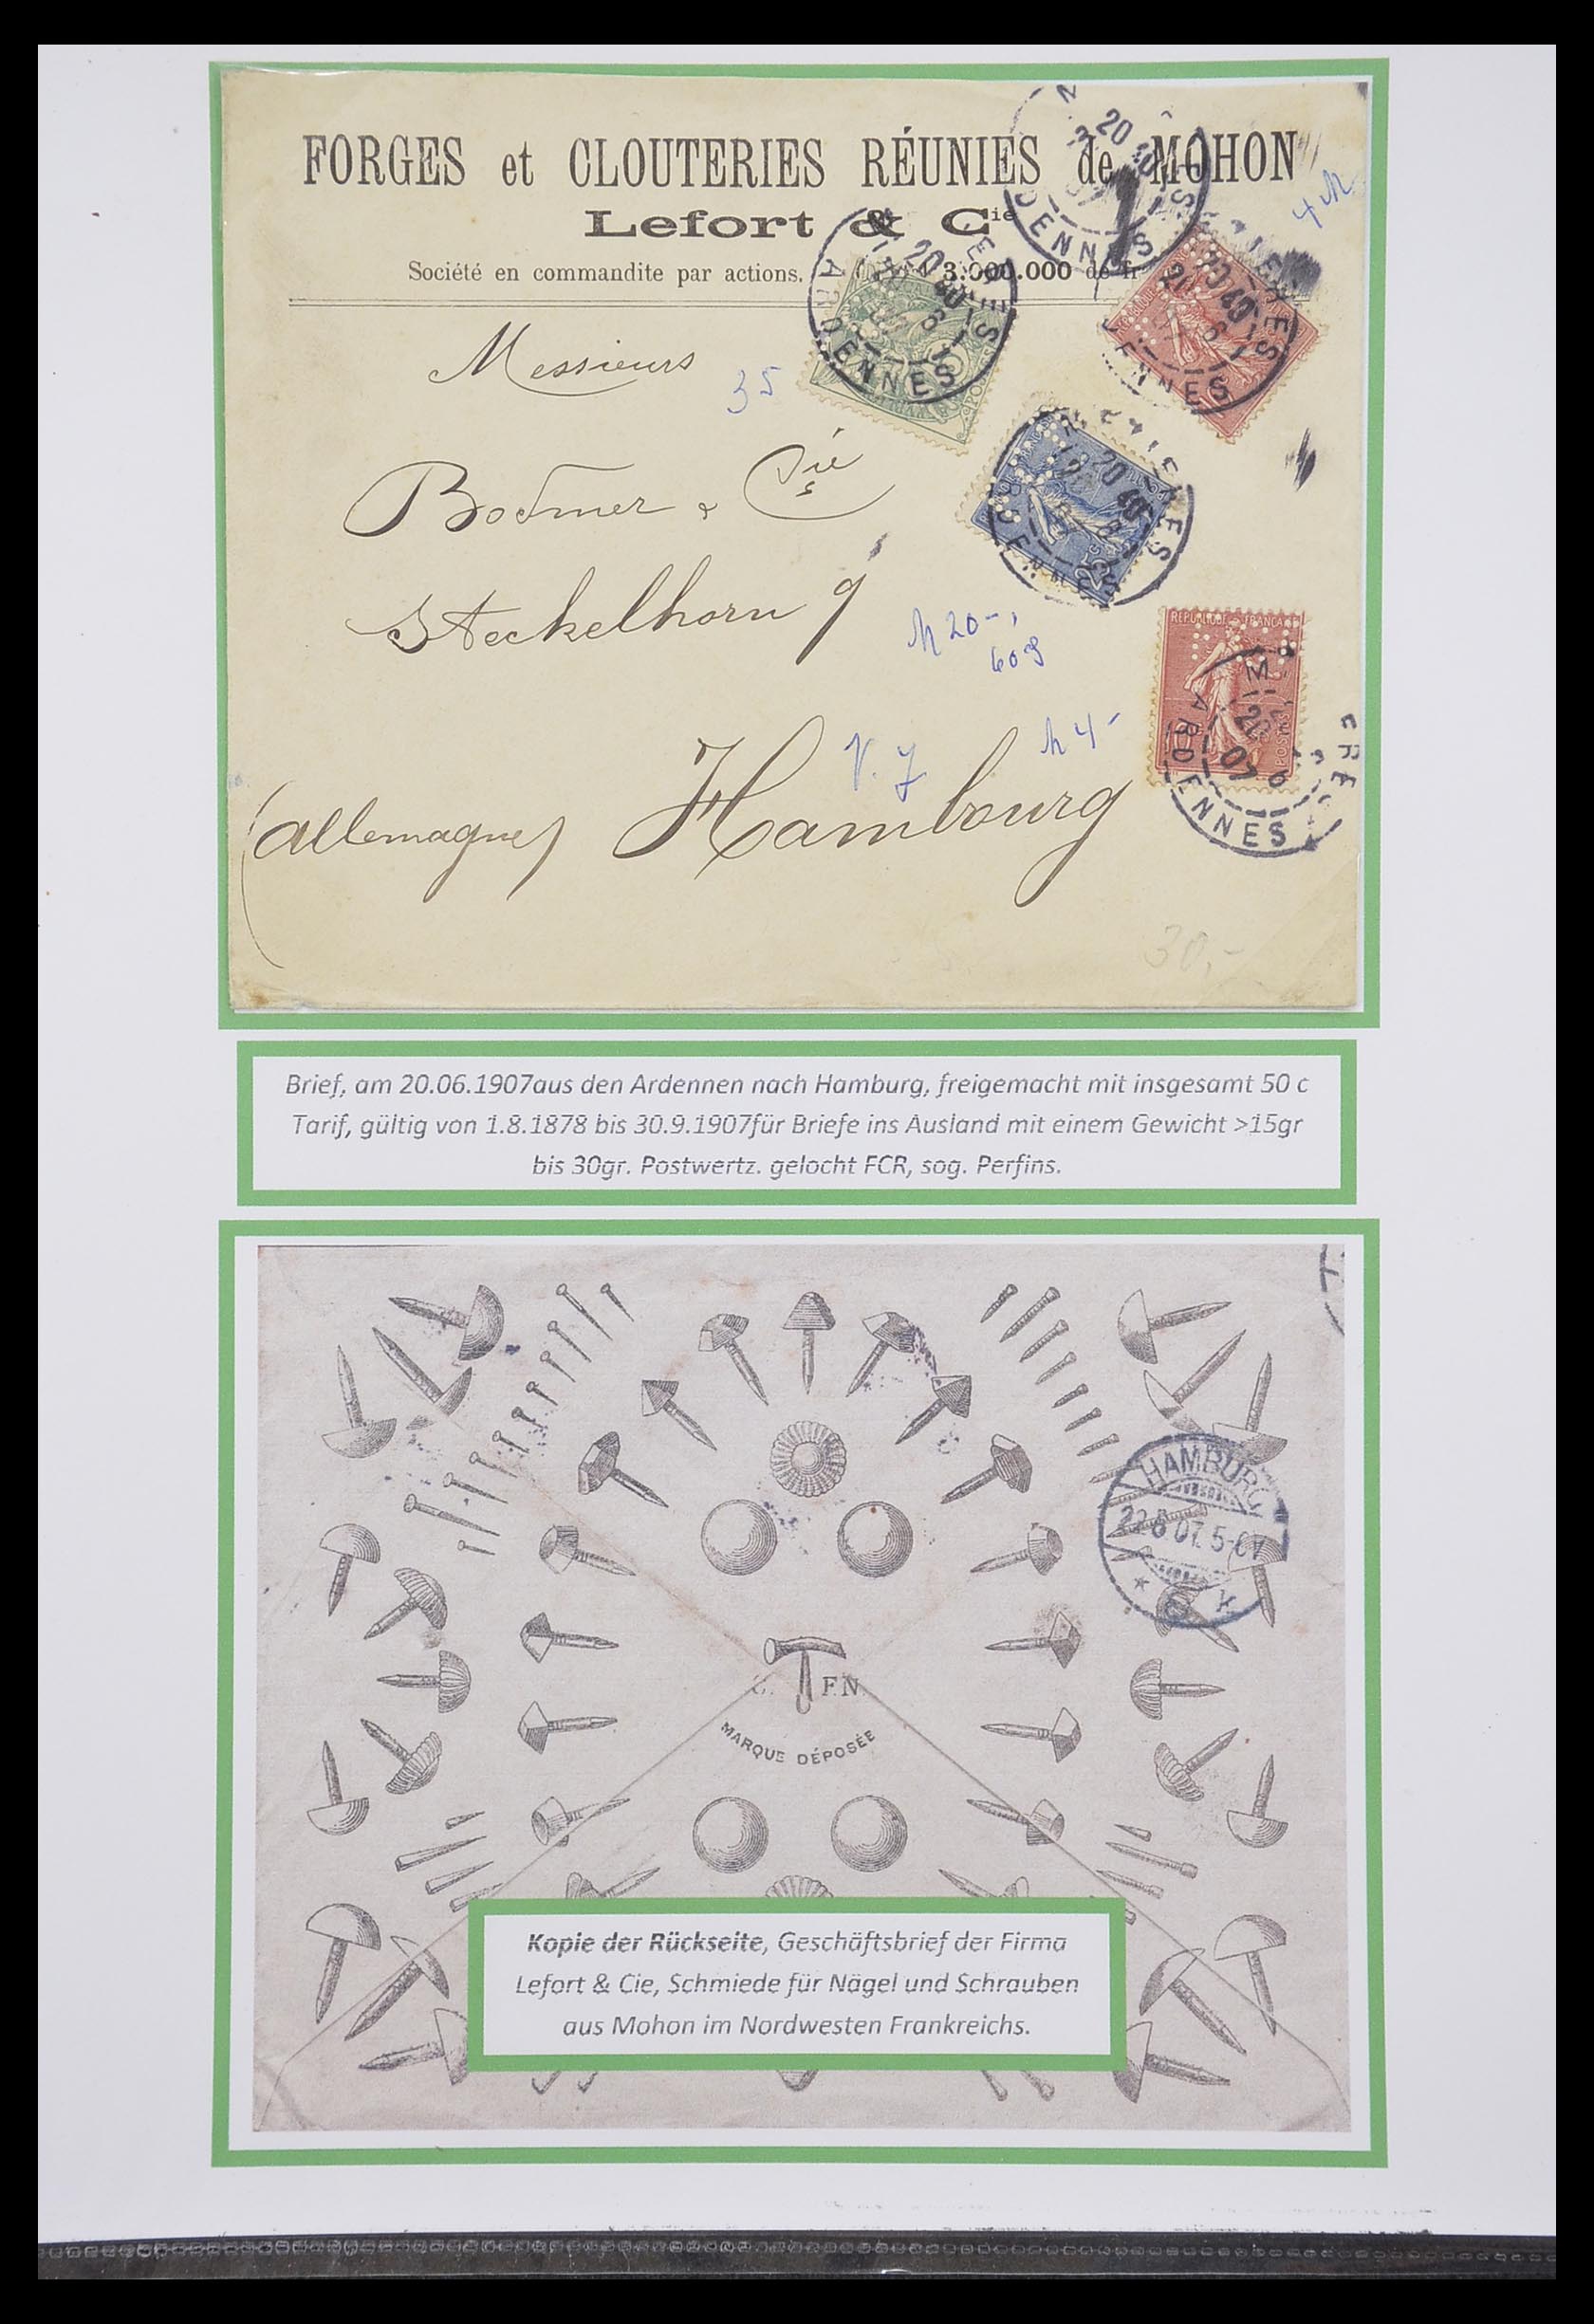 FORGES et CLOUTERIES RÉUNIES de MOHON
Lefort & Cie
Société en commandite par actions. 3.000.000 de fr
4 M
Messieurs
35
Bodmer & Cie
Steckelhorn 9
M 20-,
60 g
V. J
M 4-
(allemagne) Hambourg
30,-
ARDENNES
20 40
ARDENNES
REPUBLIQUE FRANCAISE
POSTES
Brief, am 20.06.1907aus den Ardennen nach Hamburg, freigemacht mit insgesamt 50 c
Tarif, gültig von 1.8.1878 bis 30.9.1907für Briefe ins Ausland mit einem Gewicht >15gr
bis 30gr. Postwertz. gelocht FCR, sog. Perfins.
HAMBURG
22.6 07. 5-6V
* 1 k
F.N
MARQUE DÉPOSÉE
Kopie der Rückseite, Geschäftsbrief der Firma
Lefort & Cie, Schmiede für Nägel und Schrauben
aus Mohon im Nordwesten Frankreichs.